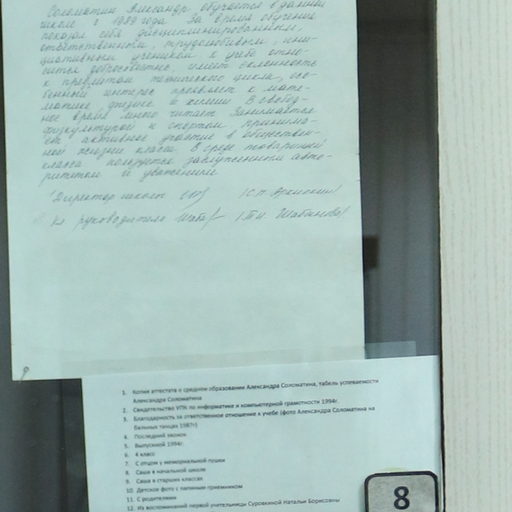 Соломатин Александр обучается в данной
школе с 1989 года. За время обучения
показал себя дисциплинированным,
ответственным, трудолюбивым, ини-
циативным учеником. К учебе отно-
сится добросовестно, имеет склонность
к предметам технического цикла, осо-
бенный интерес проявляет к мате-
матике, физике и химии. В свобод-
ное время много читает. Занимается
физкультурой и спортом, принима-
ет активное участие в обществен-
ной жизни класса. В среде товарищей
класса пользуется заслуженным авто-
ритетом и уважением.
Директор школы
Кл. руководитель
1. Копия аттестата о среднем образовании Александра Соломатина, табель успеваемости
Александра Соломатина
2. Свидетельство УПК по информатике и компьютерной грамотности 1994г.
3. Благодарность за ответственное отношение к учебе (фото Александра Соломатина на
бальных танцах 1987г)
4. Последний звонок
5. Выпускной 1994г.
6. 4 класс
7. С отцом у мемориальной пушки
8. Саша в начальной школе
9. Саша в старших классах
10. Детское фото с папиным приемником
11. С родителями
12. Из воспоминаний первой учительницы Суровкиной Натальи Борисовны
8